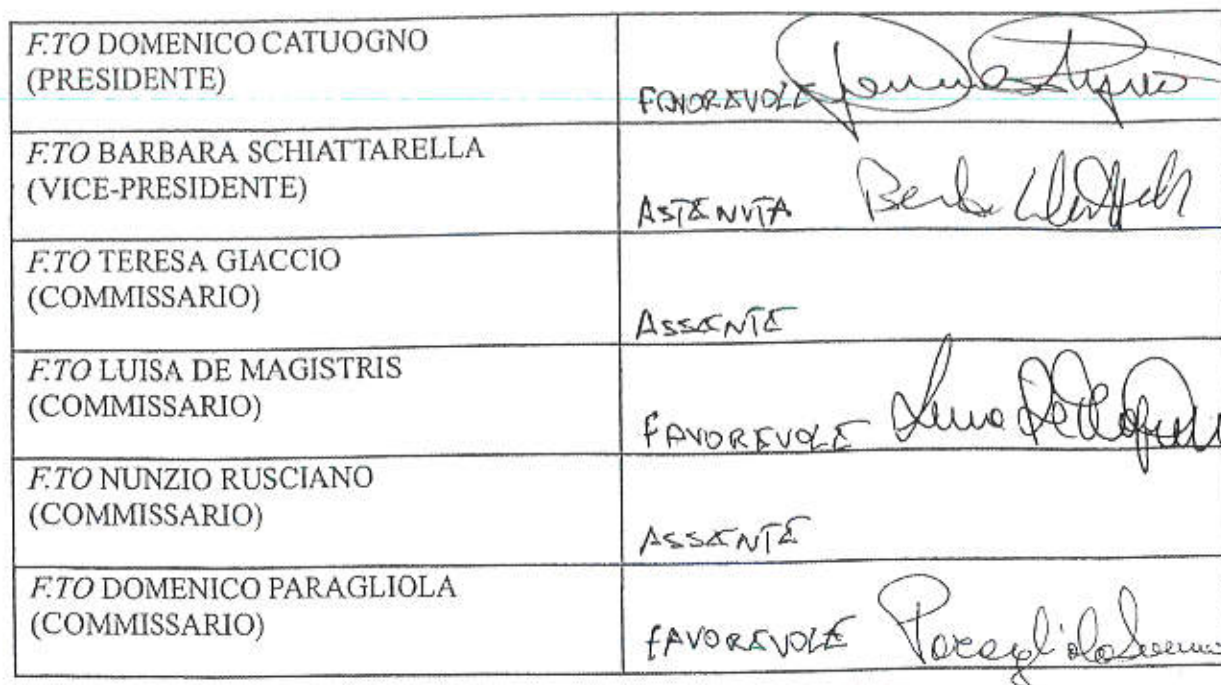 F.TO DOMENICO CATUOGNO
(PRESIDENTE)
FAVOREVOLE
F.TO BARBARA SCHIATTARELLA
(VICE-PRESIDENTE)
ASTENUTA
F.TO TERESA GIACCIO
(COMMISSARIO)
ASSENTE
F.TO LUISA DE MAGISTRIS
(COMMISSARIO)
FAVOREVOLE
F.TO NUNZIO RUSCIANO
(COMMISSARIO)
ASSENTE
F.TO DOMENICO PARAGLIOLA
(COMMISSARIO)
FAVOREVOLE